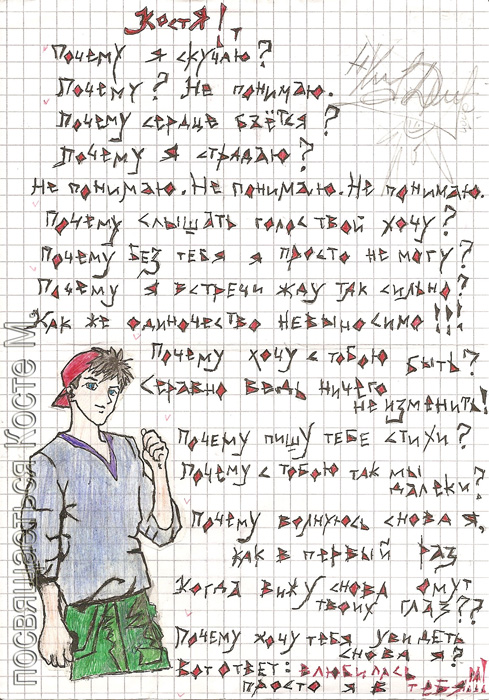 Костя!
Почему я скучаю?
Почему? Не понимаю.
Почему сердце бъётся?
Почему я страдаю?
Не понимаю. Не понимаю. Не понимаю.
Почему слышать голос твой хочу?
Почему без тебя я просто не могу?
Почему я встречи жду так сильно?
Как же одиночество невыносимо!!!
Почему хочу с тобою быть?
Серавно ведь ничего
не изменить!
Почему пишу тебе стихи?
Почему с тобою так мы
далеки?
Почему волнуюсь снова я,
как в первый раз
Когда вижу снова омут
твоих глаз??
Почему хочу тебя увидеть
снова я?
Вот ответ: влюбилась
просто я в тебя!!!
посвящаеться Косте М.